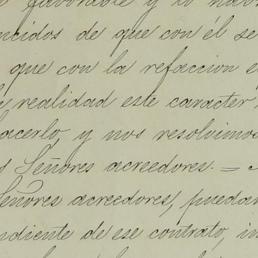 favorable y lo
ncidos de que con él se
que con la refaccion e
realidad este caracter
acerlo, y nos resolvimos
s Señores acreedores. =
Señores acreedores, puedan
ndiente de ese contrato, in